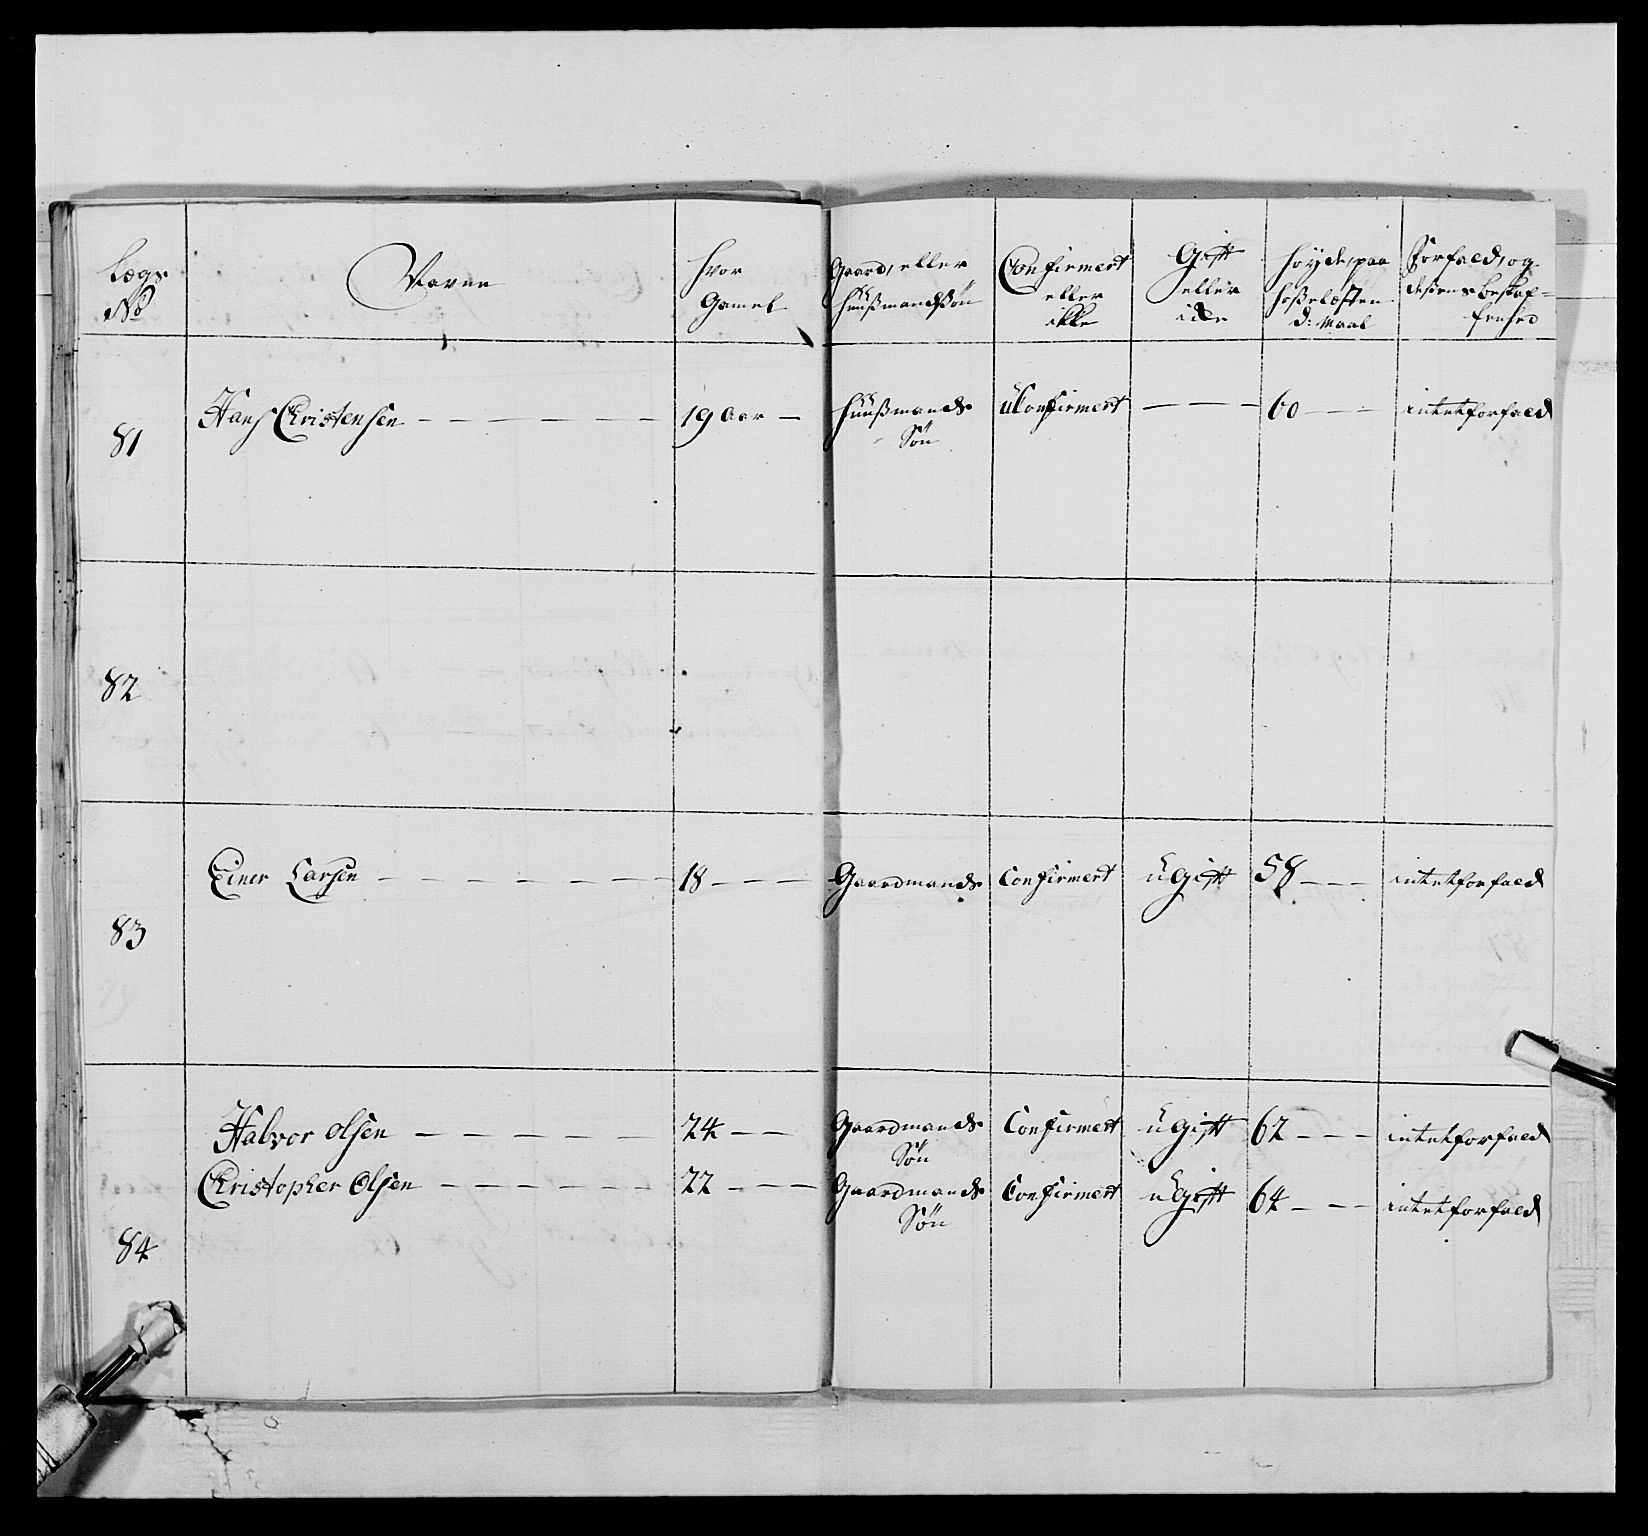 Lægs No | Navne | hvor Gamel | Gaard, eller Huusmandssøn | Confirmert eller ikke | Gift eller icke | Høyde, paa Hosselæsten d: Maal | Forfald, og dessens beskaffenhed
81 | Hans Christensen | 19 Aar | Huusmands Søn | uConfirmert | | 60 | intet forfald
82
83 | Einer Larsen | 18 | Gaardmands | Confirmert | ugift | 58 | intet forfald
84 | Halvor Olsen | 24 | Gaardmands Søn | Confirmert | ugift | 62 | intet forfald
Christopher Olsen | 22 | Gaardmands Søn | Confirmert | ugift | 64 | intet forfald